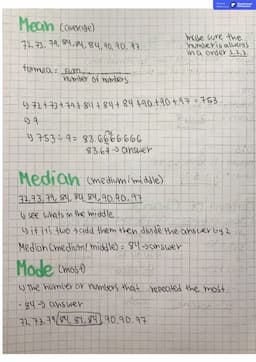 Mean (average)
72, 73, 79, 84, 84, 84, 90, 90, 97
make sure the
number is always
in a order 1,2,3
formula = sum
number of numbers
1) 72+73+79+84+84+84+90+90+97=753
2) 9
3) 753÷9= 83.6666666
83.67 → answer
Median (medium/middle)
72, 73, 79, 84, 84, 84, 90, 90, 97
1) see whats in the middle
2) if it's two → add them then divide the answer by 2
Median (medium/middle) = 84 → answer
Mode (most)
1) The number or numbers that repeated the most.
- 84 → answer
72, 73, 79, 84, 84, 84, 90, 90, 97